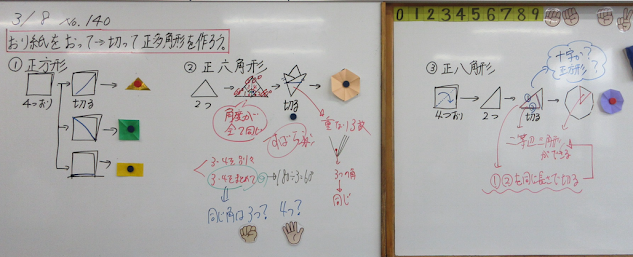 3/8 No.140
おり紙をおって→切って正多角形を作ろう。
① 正方形
4つおり
切る
② 正六角形
2つ
切る
角度が
全て同じ
すばらしい
重なり3枚
3つ角
同じ
3・4をおりく
3・4をまとめて
180÷3=60
同じ角は3つ? 4つ?
0 1 2 3 4 5 6 7 8 9
③ 正八角形
十字が?
正方形?
4つおり
2つ
切る
二等辺三角形
ができる
①②を同じ長さで切る